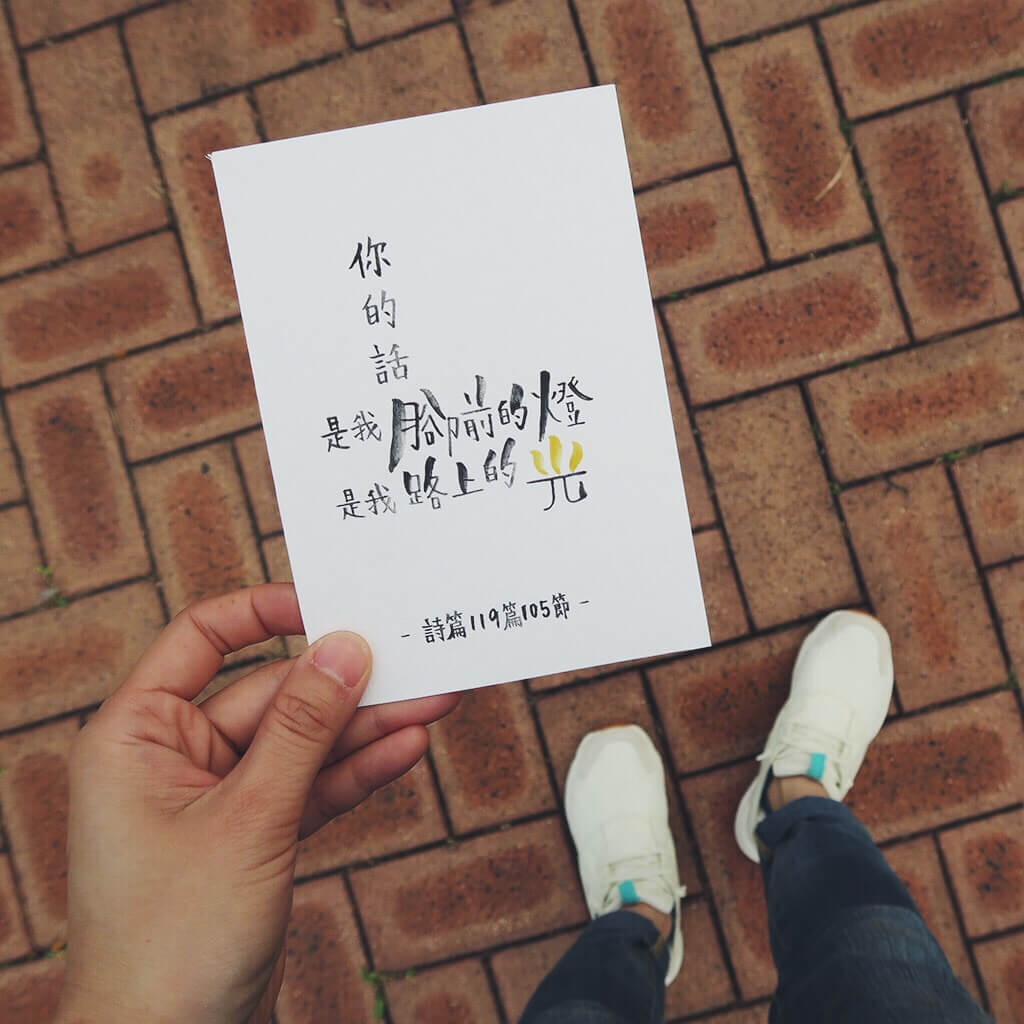 你的話
是我腳前的燈
是我路上的光
- 詩篇119篇105節 -